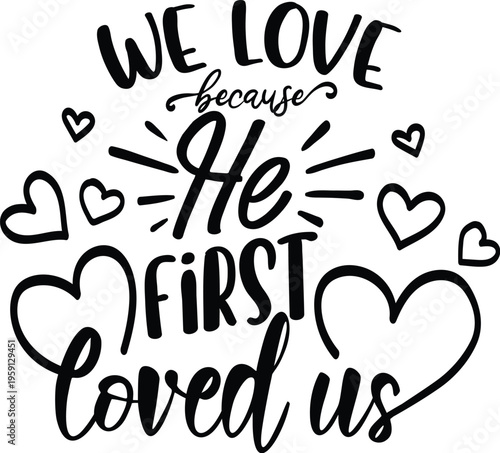 WE LOVE
because
He
FiRST
loved us
Adobe Stock | #1959129451